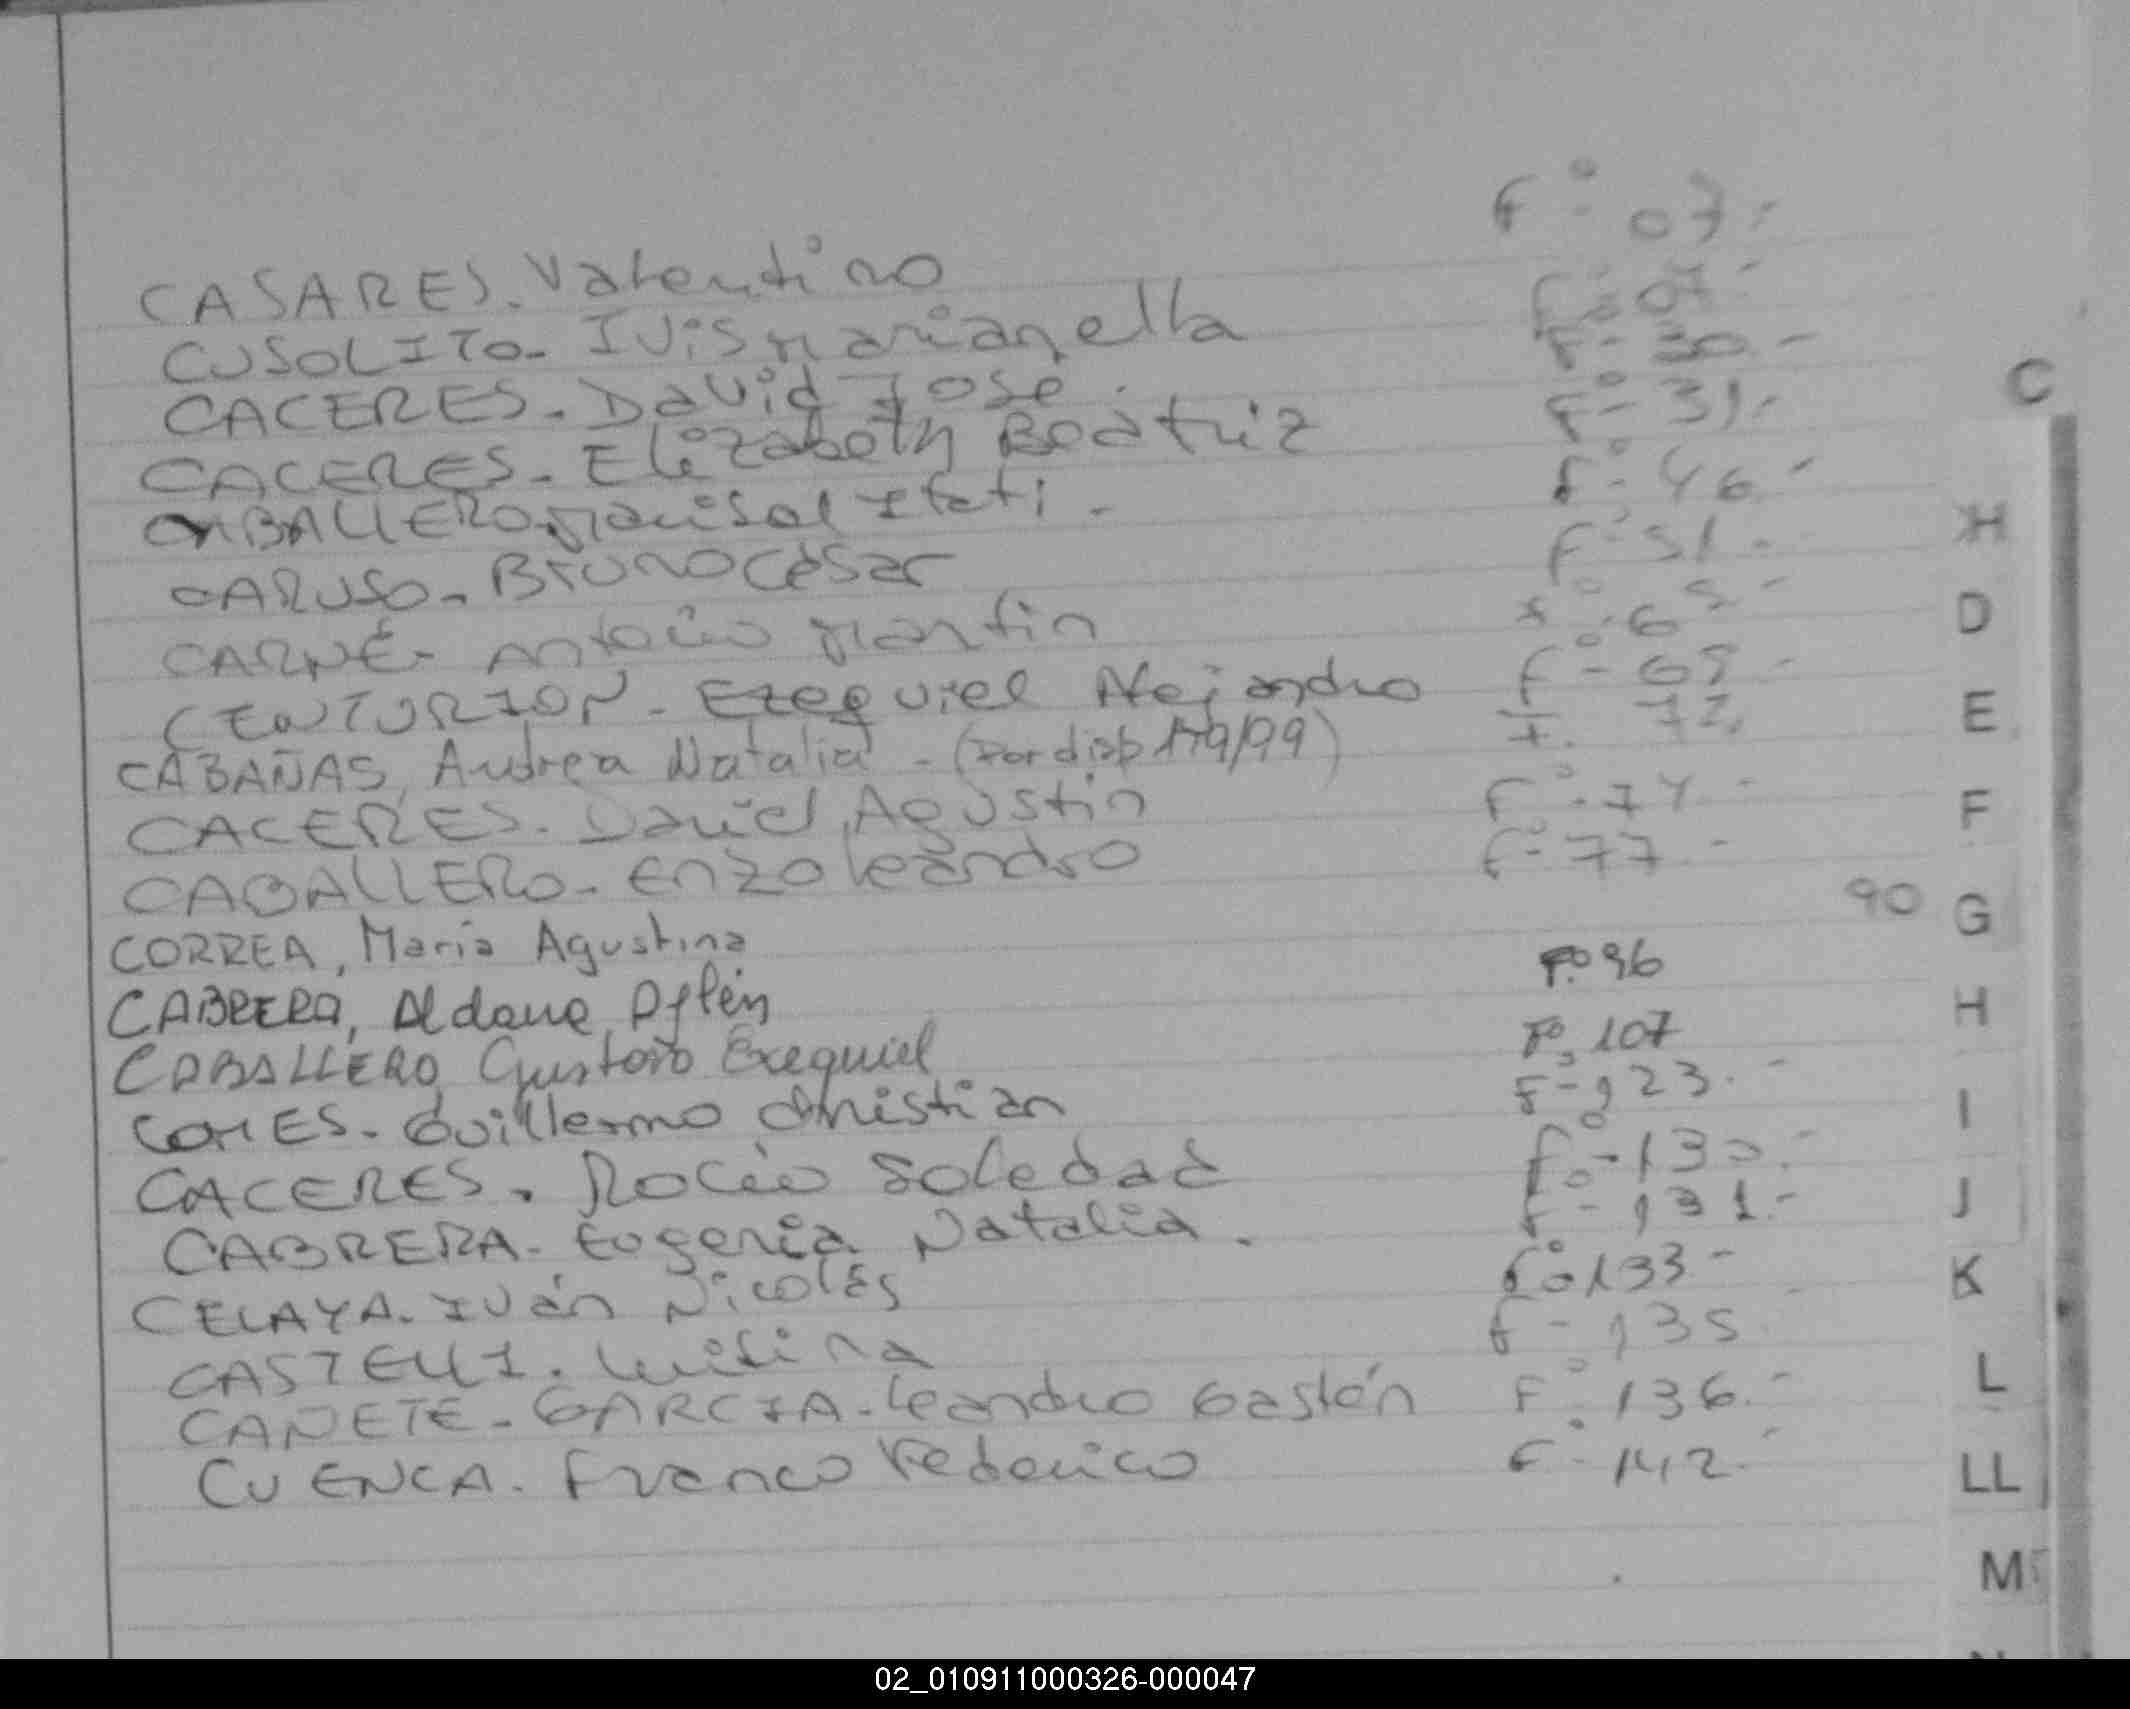 CASARES. Valentino F° 07.-
CUSOLITO- Ivis Marianella F° 07.-
CACERES. David Jose. F° 30.-
CACERES- Elizabeth Beatriz F° 31.-
CABALLERO. Marisol Itati. F° 46.-
CARUSO- Bruno César F° 51.-
CARNÉ- Antonio Martin F° 65.-
CENTURION- Ezequiel Alejandro F° 69.-
CABAÑAS, Andrea Natalia - (Por disp 179/99) F. 72.
CACERES. Daniel Agustin F° 74.-
CABALLERO- Enzo Leandro F° 77.-
CORREA, Maria Agustina 90
CABRERA, Aldana Aylén F° 96
CABALLERO Gustavo Exequiel F° 107
COMES. Guillermo Christian F° 123.-
CACERES. Rocio Soledad F° 130.-
CABRERA- Eugenia Natalia. F° 131.-
CELAYA. Iván Nicolás F° 133-
CASTELLI. F° 135
CAÑETE- GARCIA- Leandro Gastón F° 136.-
CUENCA. Franco Federico F° 142.-
C
H
D
E
F
G
H
I
J
K
L
LL
M
02_010911000326-000047